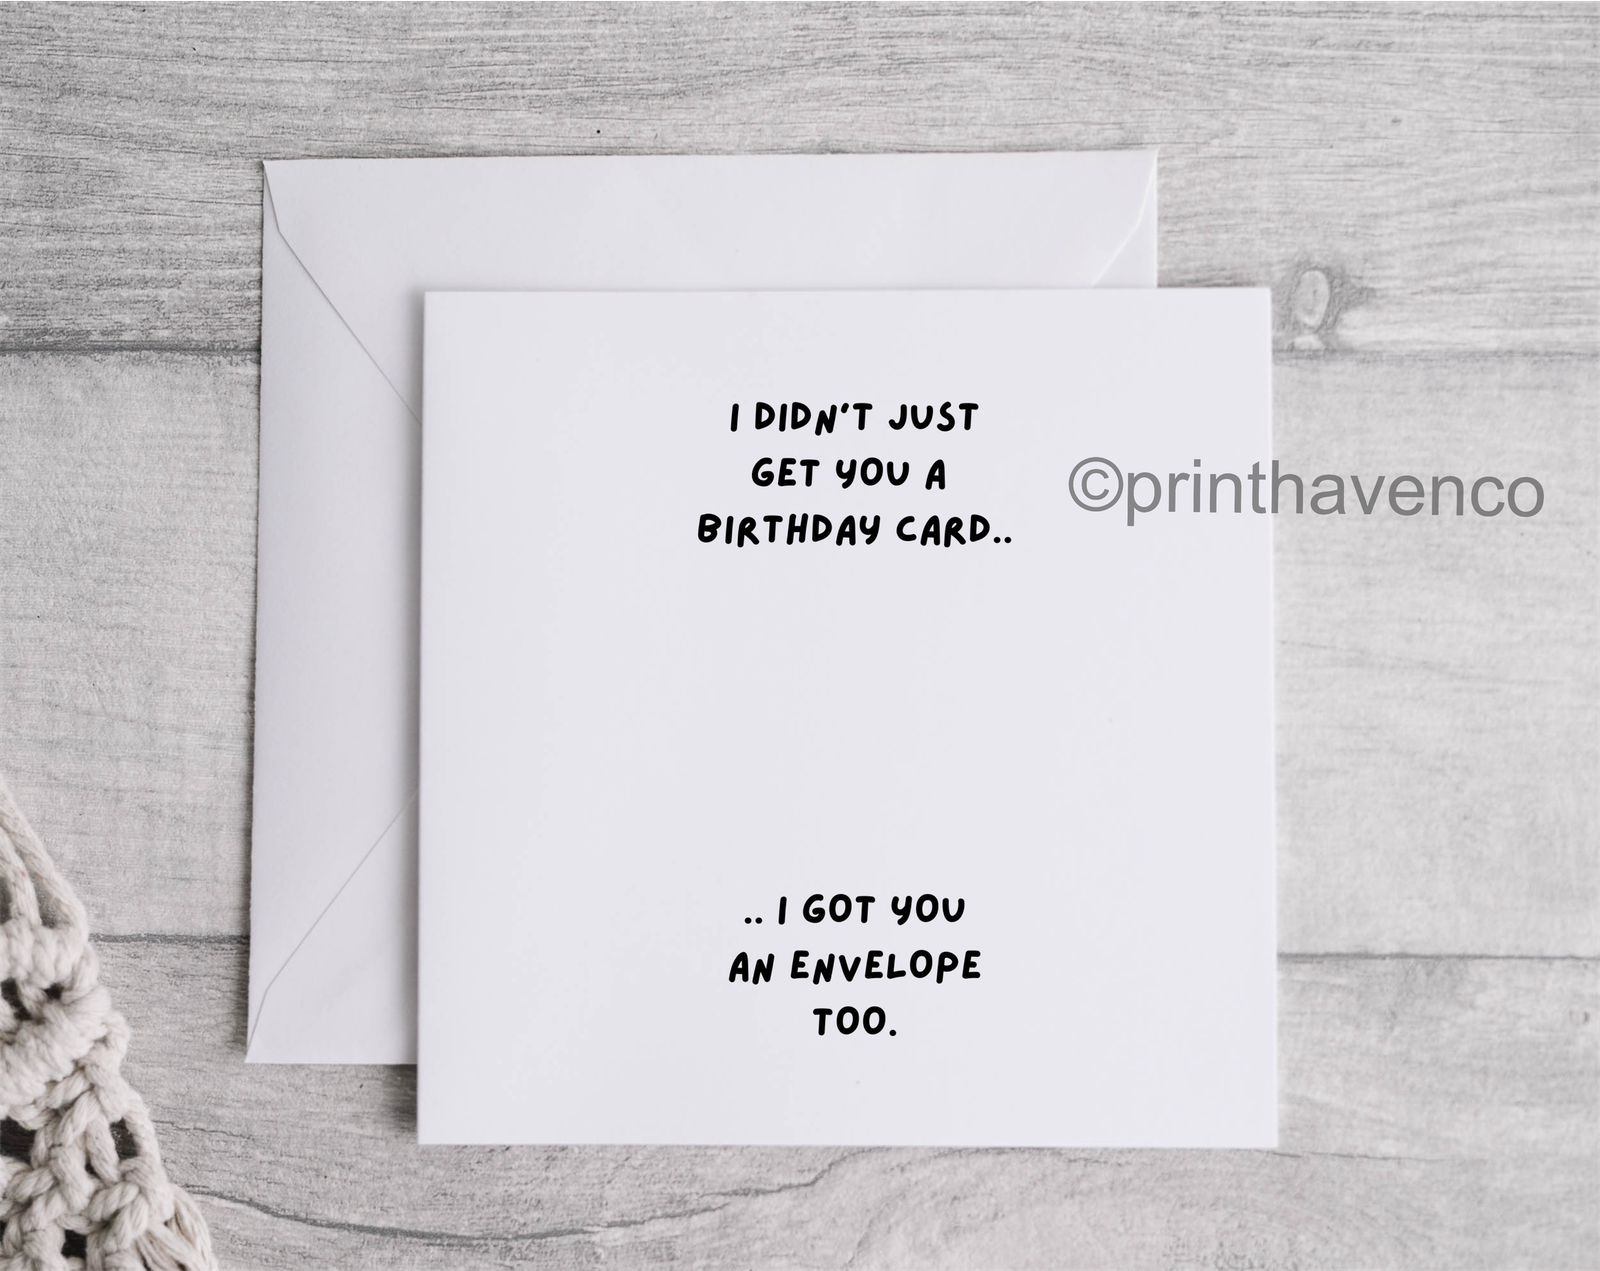 I DIDN'T JUST
GET YOU A
BIRTHDAY CARD..
©printhavenco
.. I GOT YOU
AN ENVELOPE
TOO.